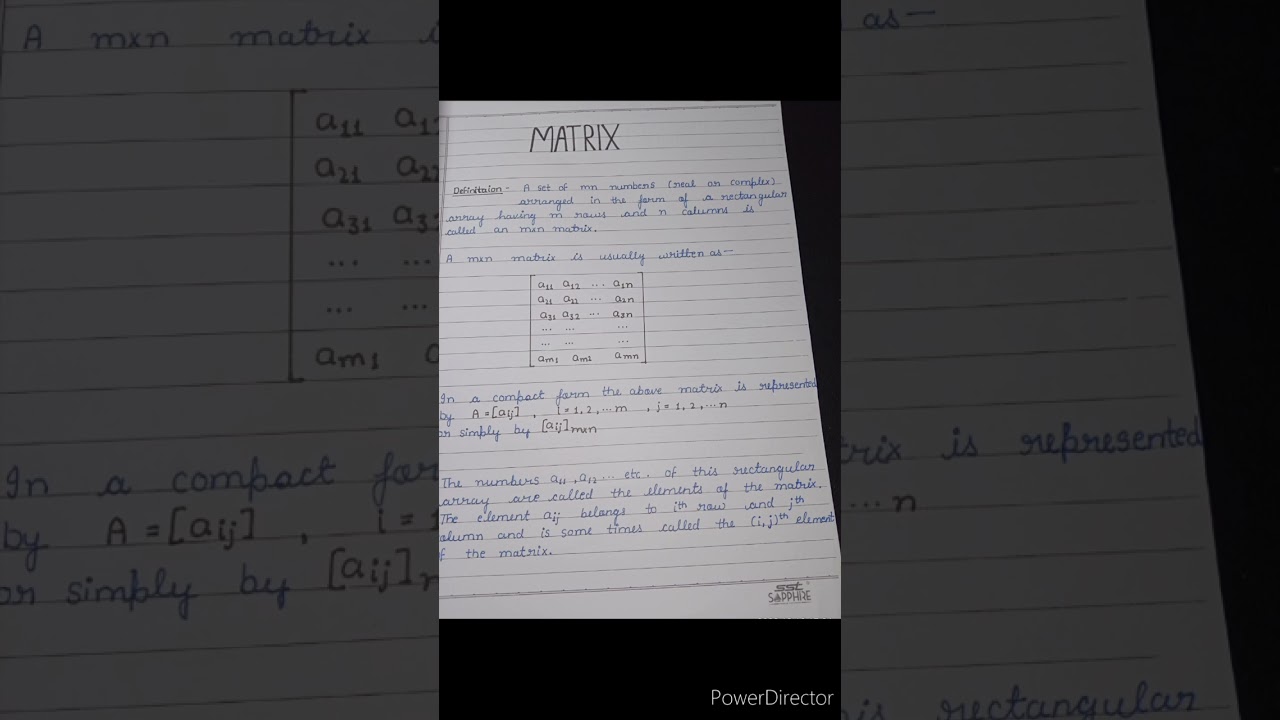 MATRIX
Definitaion - A set of mn numbers (real or complex)
arranged in the form of a rectangular
array having m rows and n columns is
called an mxn matrix.
A mxn matrix is usually written as—
a11 a12 ... a1n
a21 a22 ... a2n
a31 a32 ... a3n
... ... ...
... ... ...
am1 am2 amn
In a compact form the above matrix is represented
by A = [aij] , i = 1, 2, ... m , j = 1, 2, ... n
or simply by [aij]mxn
The numbers a11, a12 ... etc. of this rectangular
array are called the elements of the matrix.
The element aij belongs to ith row and jth
olumn and is some times called the (i, j)th element
f the matrix.
sst
SAPPHIRE
A mxn matrix i
as—
a11 a1
a21 a2
a31 a3
... ...
... ...
am1
In a compact for
trix is represented
by A = [aij] , i =
... n
or simply by [aij]
is rectangular
PowerDirector